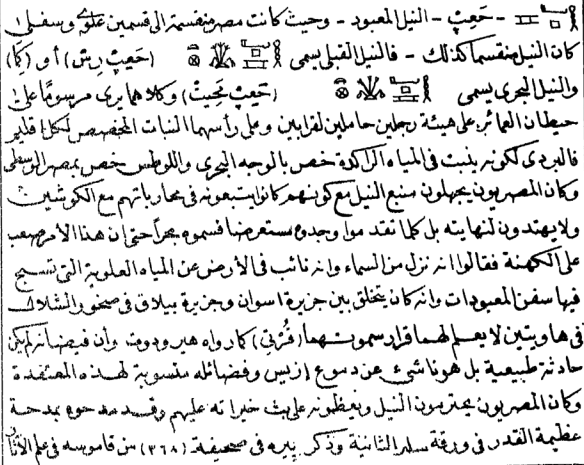 – حَعِپْ – النيل المعبود – وحيث كانت مصر منقسمة الى قسمين علوى وسفلى
كان النيل منقسما كذلك – فالنيل القبلى يسمى (حَعِپْ رِسْ) أو (كِمَا)
والنيل البحرى يسمى (حَعِپْ مَحِيتْ) وكلاهما يرى مرسوما على
حيطان العمائر على هيئة رجلين حاملين لقرابين وعلى رأسهما النبات المخصص لكل اقليم
فالبردى لكونه ينبت فى المياه الراكدة خص بالوجه البحرى واللوطس خص بمصر الوسطى
وكان المصريون يجهلون منبع النيل مع كونهم كانوا يتبعونه فى محارباتهم مع الكوشيين
ولا يهتدون لنهايته بل كلما تقدموا وجدوه مستعرضا فسموه بحرا حتى ان هذا الأمر صعب
على الكهنة فقالوا انه نزل من السماء وانه نائب فى الأرض عن المياه العلوية التى تسبح
فيها سفن المعبودات وانه كان يتخلق بين جزيرة اسوان وجزيرة بيلاق فى صخور الشلالات
فى هاويتين لا يعلم لهما قرار سموتهما (قُرْتِى) كما رواه هيرودوت وأن فيضانه لم يكن
حادثة طبيعية بل هو ناشئ عن دموع إزيس وفضائله منسوبة لهذه المعتقدة
وكان المصريون يحترمون النيل ويعظمونه على بث خيراته عليهم وقد مدحوه بمدحة
عظيمة القدر فى ورقة سلير الثانية وذكر بيره فى صحيفة (٣٦٨) من قاموسه فى علم الآثار